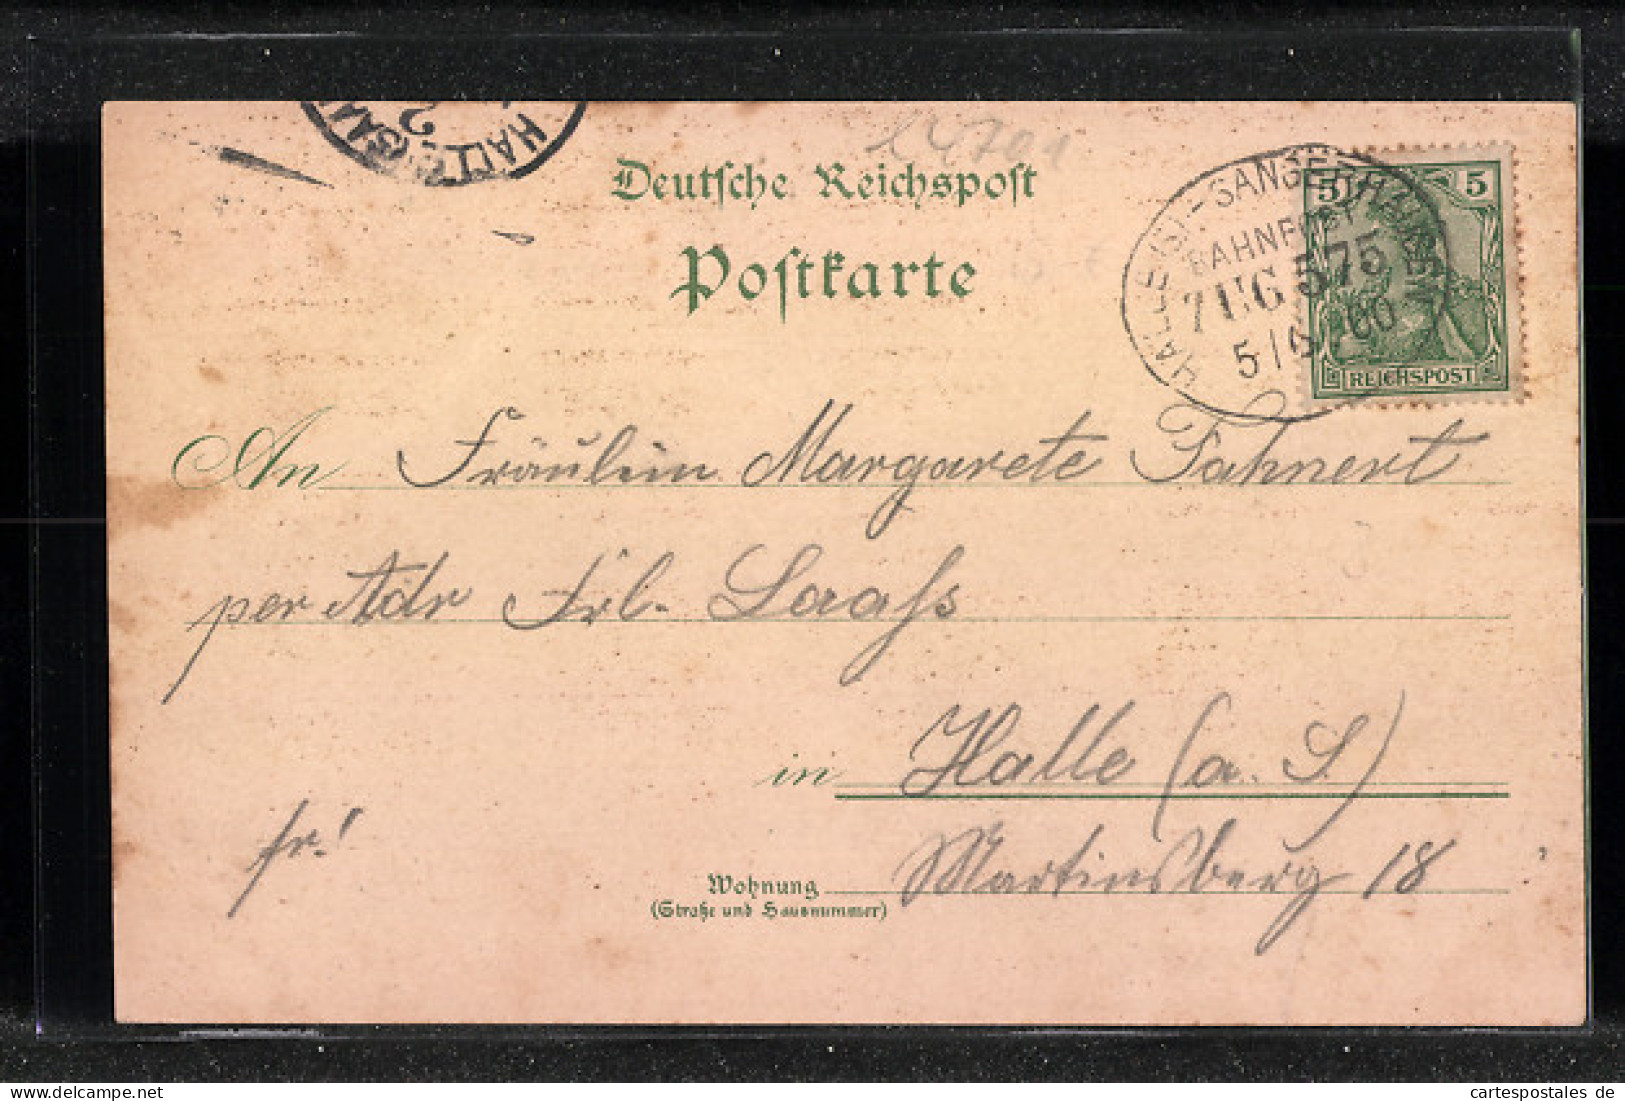 HALLE (SAA
2
14701
Deutsche Reichspost
Postkarte
HALLE (S) - SANGERHAUSEN
BAHNPOST
ZUG 575
5/6 00
5 5
REICHSPOST
An Fräulein Margarete Fahnert
per Adr Frl. Laaß
in Halle (a. S.)
fr!
Wohnung Martinsberg 18
(Straße und Hausnummer)
delcampe.net
cartespostales de